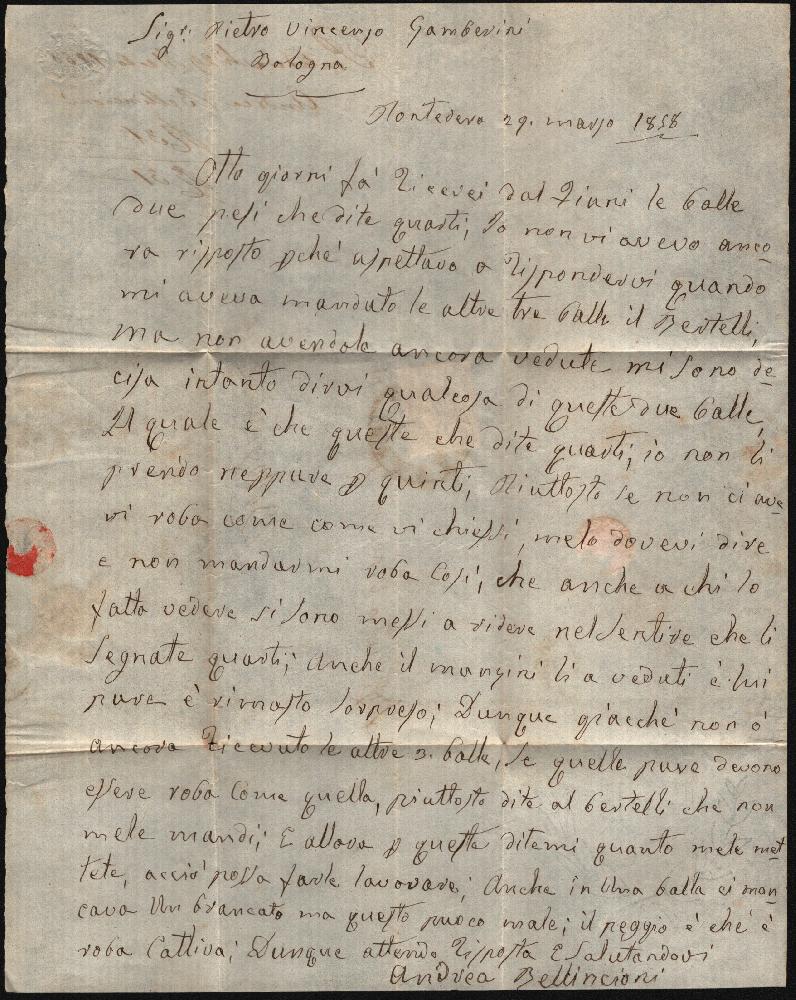 Sigr: Pietro Vincenzo Gamberini
Bologna
Pontedera 29. marzo 1858
Otto giorni fà Ricevei dal Piani le balle
due pesi che dite quarti; Io non vi avevo anco
ra risposto pche' aspettavo a Rispondervi quando
mi aveva mandato le altre tre balle il Bertelli,
ma non avendole ancora vedute mi sono de
cisa intanto dirvi qualcosa di queste due balle,
Il quale è che queste che dite quarti; io non li
prendo neppure p quinti, Piuttosto se non ci ave
vi roba come come vi chiessi, melo dovevi dire
e non mandarmi roba Così, che anche a chi lo
fatta vedere si sono messi a ridere nel sentire che li
segnate quarti; Anche il manzini li a veduti è lui
pure è rimasto sorpreso; Dunque giacche' non ò
ancora Ricevuto le altre 3. balle, se quelle pure devono
essere roba Come quella, piuttosto dite al bertelli che non
mele mandi; E allora p queste ditemi quanto mele met
tete, acciò possa farle lavorare; Anche in Una balla ci man
cava Un brancato ma questo puoco male; il peggio è che è
roba Cattiva; Dunque attendo Risposta E Salutandovi
Andrea Bellincioni